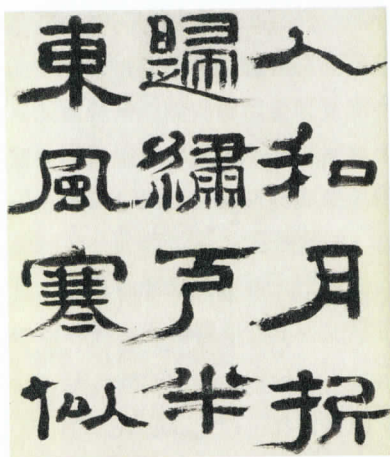 人和月折
歸繡戶半
東風寒似